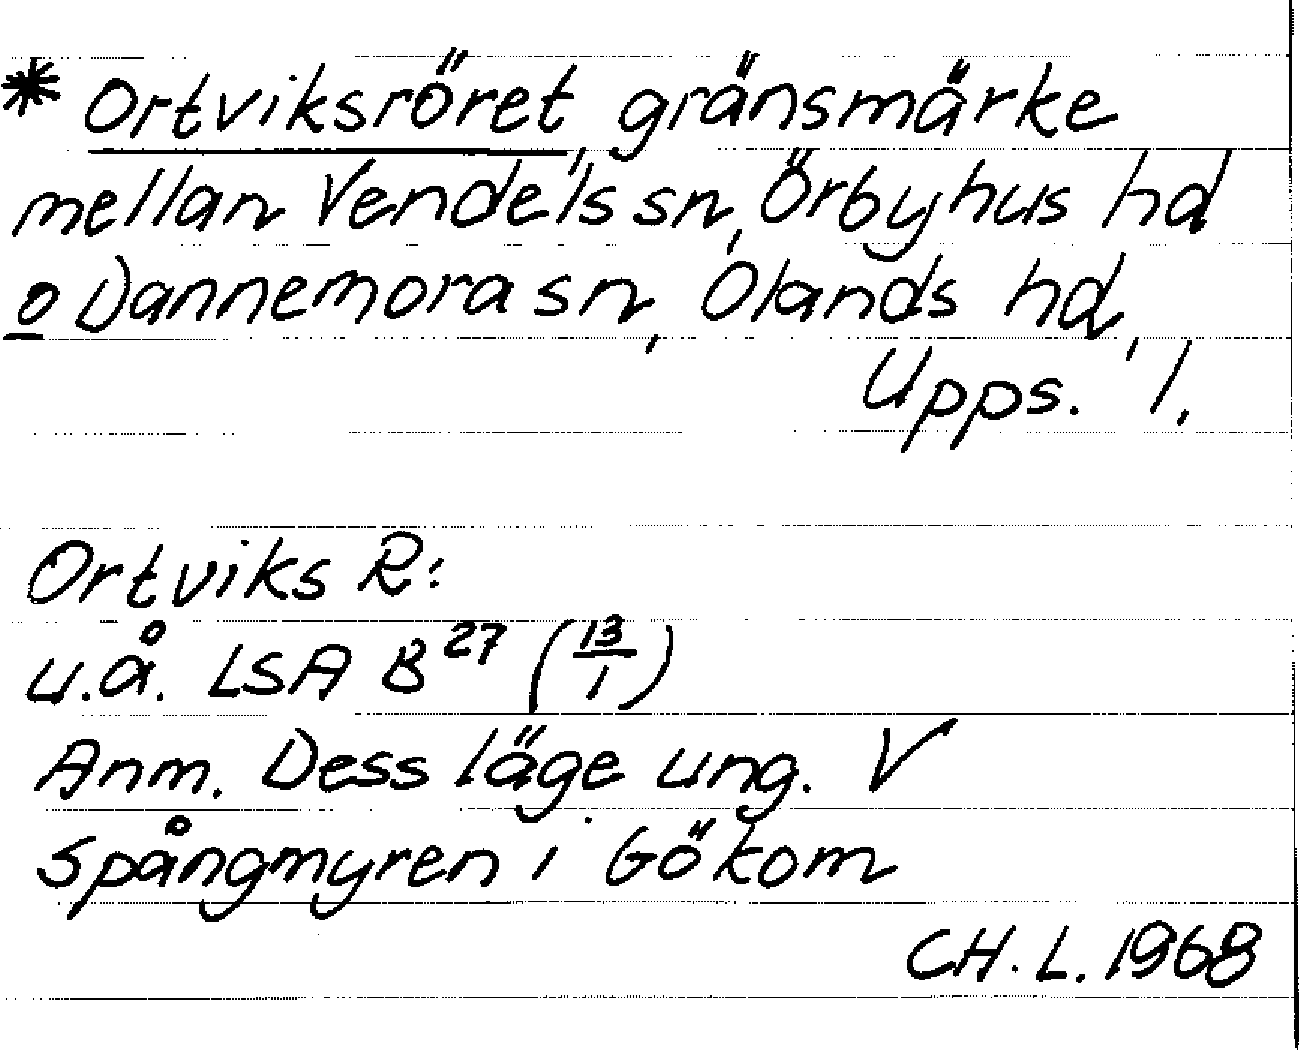 * Ortviksröret, gränsmärke
mellan Vendels sn, Örbyhus hd
o Dannemora sn, Olands hd,
Upps. l.
Ortviks R:
u.å. LSA B 27 (13/1)
Anm. Dess läge ung. V
Spångmyren i Gökom
CH. L. 1968